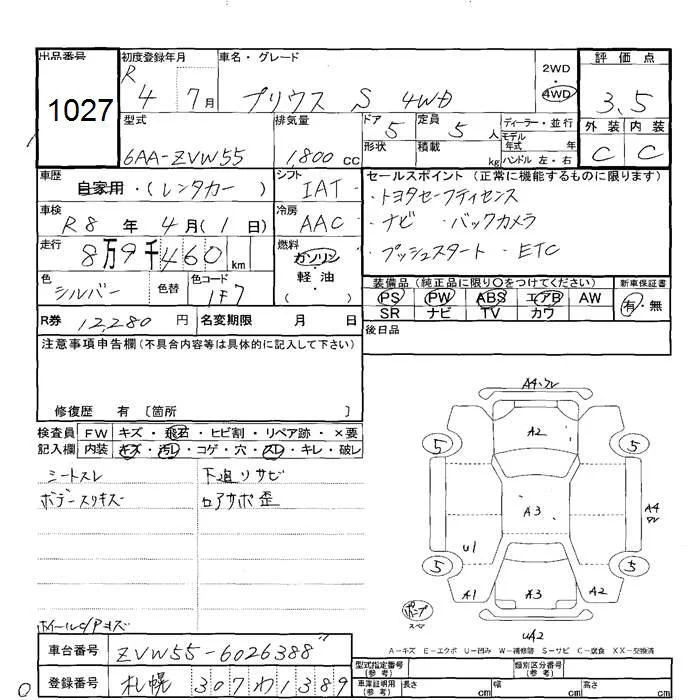 出品番号 初度登録年月 車名・グレード 評価点
1027
R 4 7月 プリウス S 4WD 2WD 4WD 3.5
型式 排気量 ドア 5 定員 5人 ディーラー・並行 外装 内装
6AA-ZVW55 1800cc 形状 積載 kg モデル年式 年 C C
ハンドル 左・右
車歴 シフト セールスポイント(正常に機能するものに限ります)
自家用・(レンタカー) IAT ・トヨタセーフティセンス
車検 冷房 ・ナビ ・バックカメラ
R8年 4月(1日) AAC ・プッシュスタート ・ETC
走行 燃料
8万9千460km ガソリン・軽油 ( )
色 色替 色コード 装備品(純正品に限り○をつけてください) 新車保証書
シルバー 1F7 PS PW ABS エアB AW 有・無
SR ナビ TV カワ
R券 12,280円 名変期限 月 日 後日品
注意事項申告欄(不具合内容等は具体的に記入して下さい)
修復歴 有 [箇所 ]
検査員 FW キズ・飛石・ヒビ割・リペア跡・×要
記入欄 内装 キズ・汚レ・コゲ・穴・スレ・キレ・破レ
シートスレ 下廻リサビ
ボデースリキズ ロアサポ歪
ホイールC/Pキズ
A4・ワレ
A2
5 5
A3
A4
ワレ
U1
5 5
A1 A3 A2
ポンプ
スペア
UA2
A-キズ E-エクボ U-凹み W-補修跡 S-サビ C-腐食 XX-交換済
車台番号 ZVW55-6026388
登録番号 札幌 307わ1389
型式指定番号(参考) 類別区分番号(参考)
車庫証明用(参考) 長さ cm 幅 cm 高さ cm
0